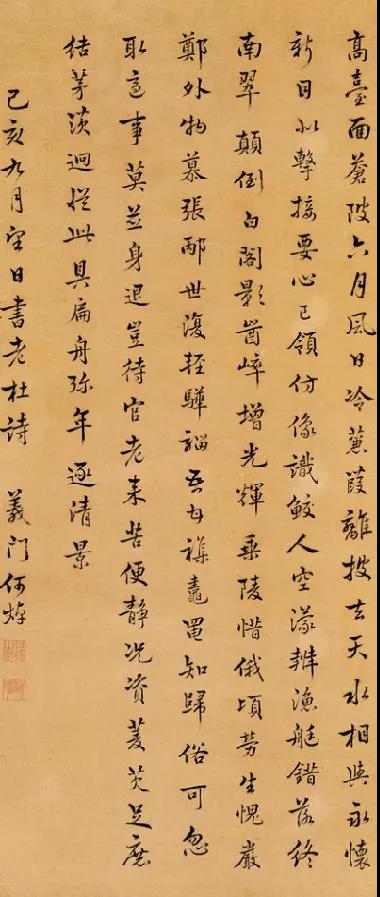 高臺面蒼陂六月風日冷蒹葭離披去天水相與永懷
新目似擊接要心已領仿像識鮫人空濛辨漁艇錯落終
南翠顛倒白閣影崷崒增光輝乘陵惜俄頃勞生愧巖
鄭外物慕張邴世復輕驊騮吾甘雜鼃黽知歸俗可忽
取適事莫並身退豈待官老來苦便靜況資菱芡足庶
結茅茨迥從此具扁舟弥年逐清景
己亥九月望日書老杜詩 義門何焯